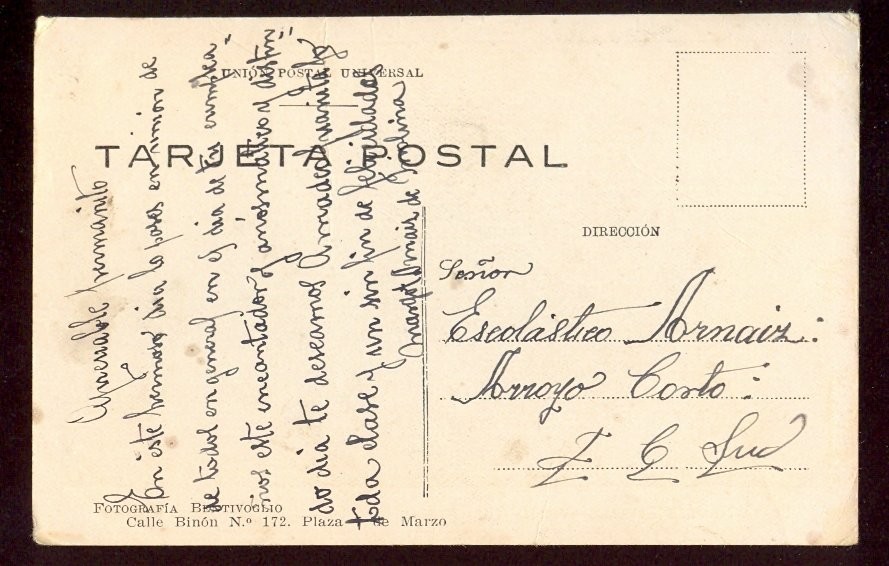 UNIÓN POSTAL UNIVERSAL
TARJETA POSTAL
DIRECCIÓN
Señor
Escolástico Arnaiz:
Arroyo Corto:
F C Sud
hermanito
En este hermoso dia la pasas en union de
de todos en general en el dia de tu cumplea-
ños este encantador y distin-
do dia te deseamos
toda clase y un sin fin de felicidades
Arnaiz de Molina
FOTOGRAFÍA BENTIVOGLIO
Calle Binón N.º 172. Plaza de Marzo